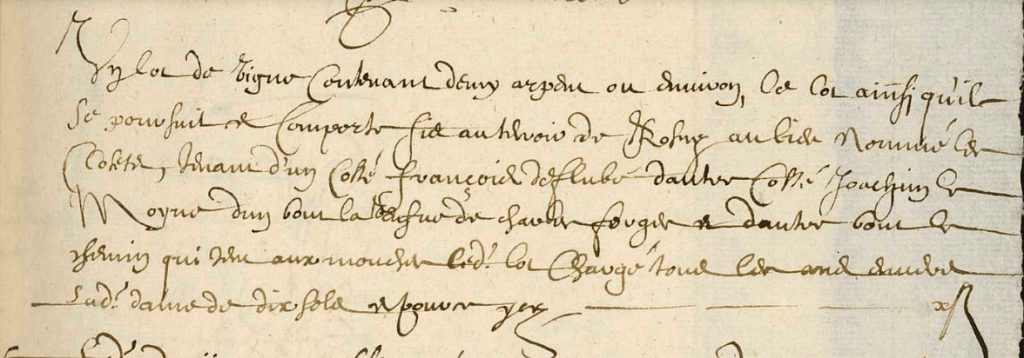 Ung lot de vigne contenant deux arpens ou environ, le lot ainsi qu'il
se poursuit et comporte sis au teroir de Rosny au lieu nommé les
Clostz, tenant d'un costé françois deflubé d'autre costé Joachin le
Moyne d'un bout la vefve de charles forges et d'autre bout le
chemin qui tent aux mouches led.t lot chargé tous les ans envers
lad.t dame de dix solz et pource icy x s